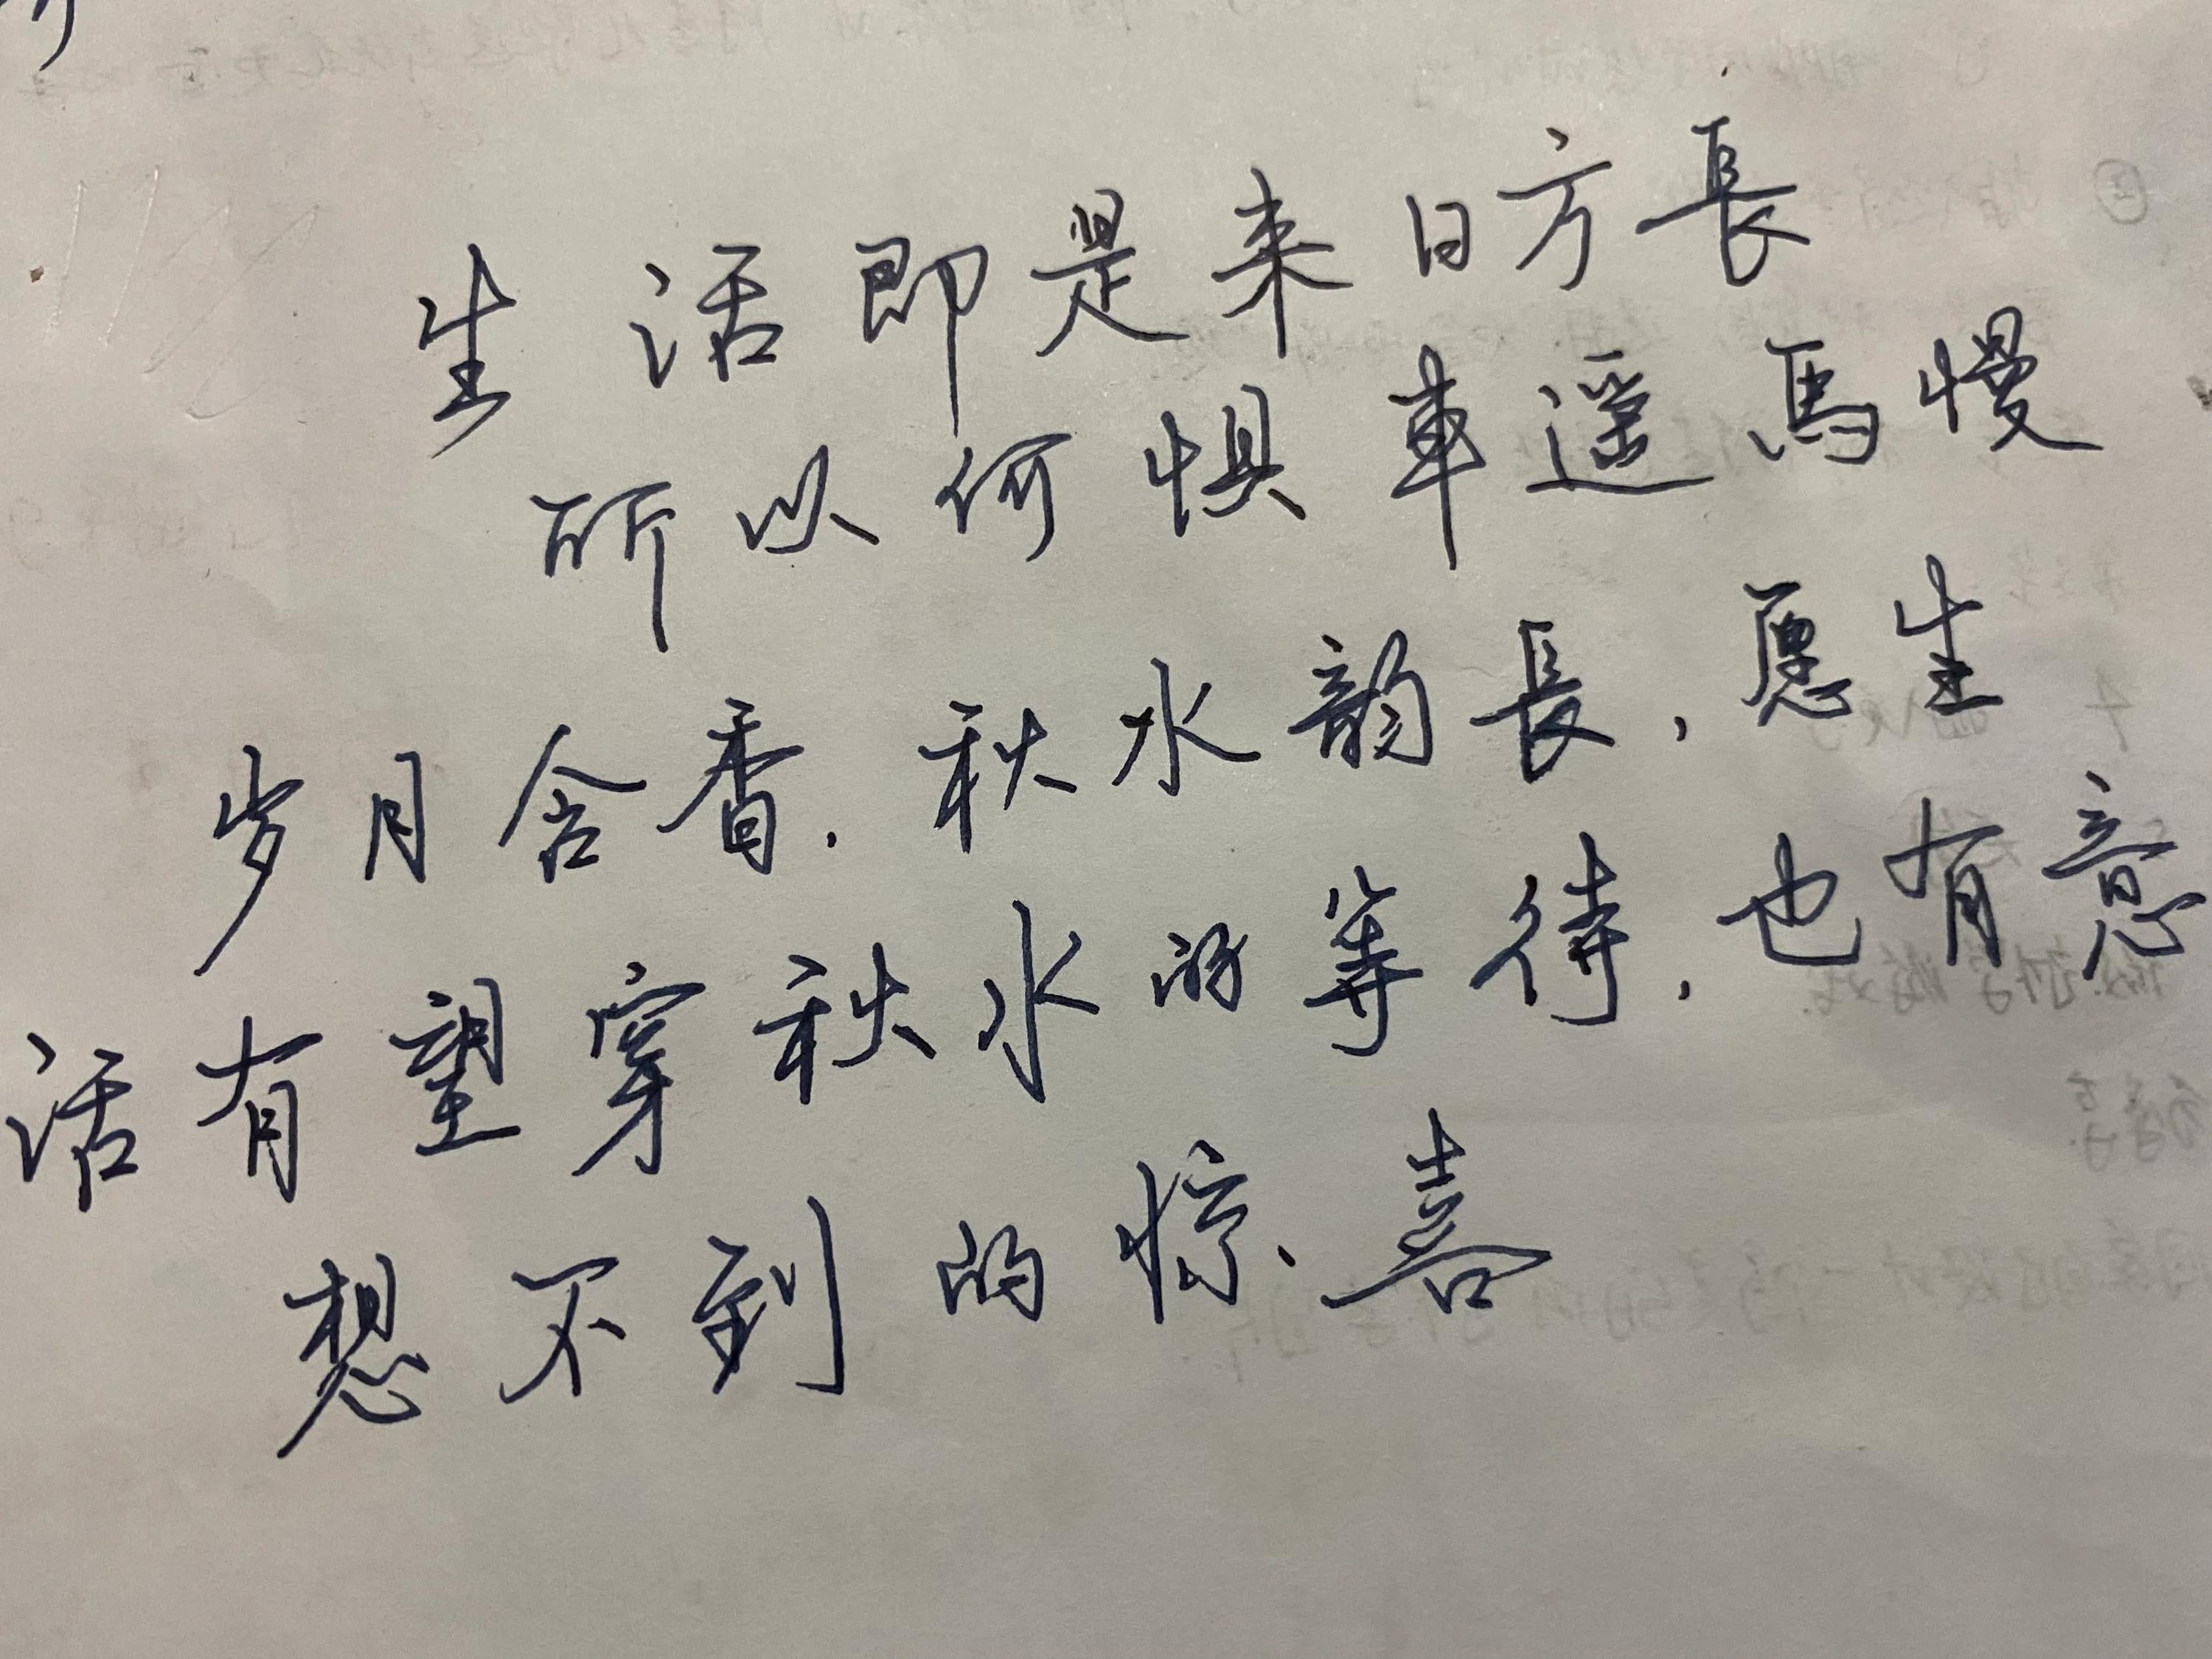 生活即是来日方長
所以何惧車遥馬慢
岁月含香.秋水韵長,愿生
活有望穿秋水的等待,也有意
想不到的惊喜